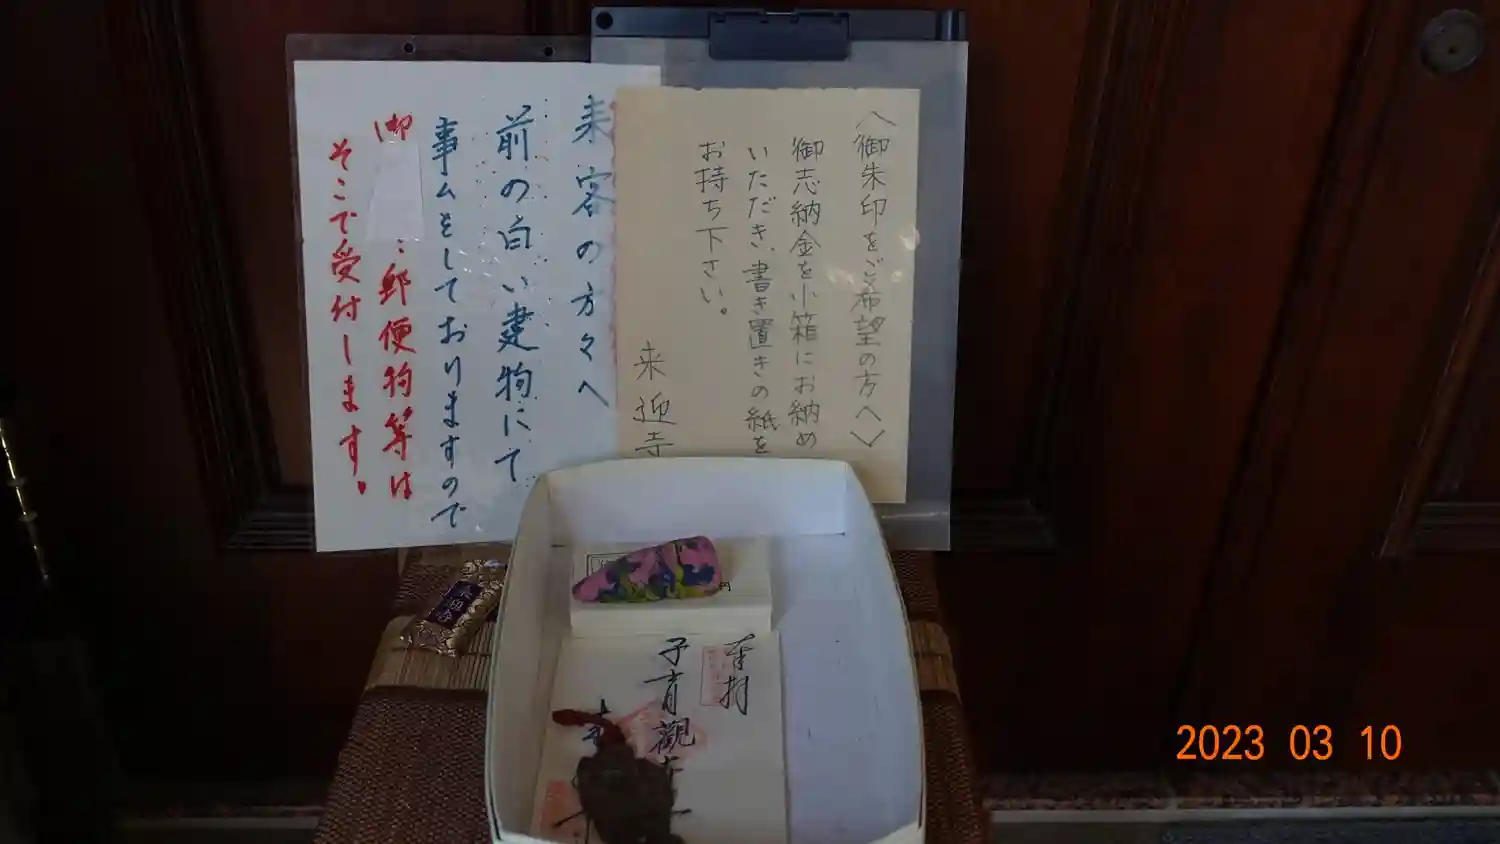 〈御朱印をご希望の方へ〉
御志納金を小箱にお納め
いただき、書き置きの紙を
お持ち下さい。
来迎寺
来客の方々へ
前の白い建物にて
事ムをしておりますので
御
：郵便物等は
そこで受付します。
来迎寺
円
奉拝
子育観
2023 03 10